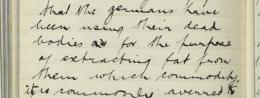 that the germans have
been using their dead
bodies as for the purpose
of extracting fat from
them which commodity
it is commonly averred